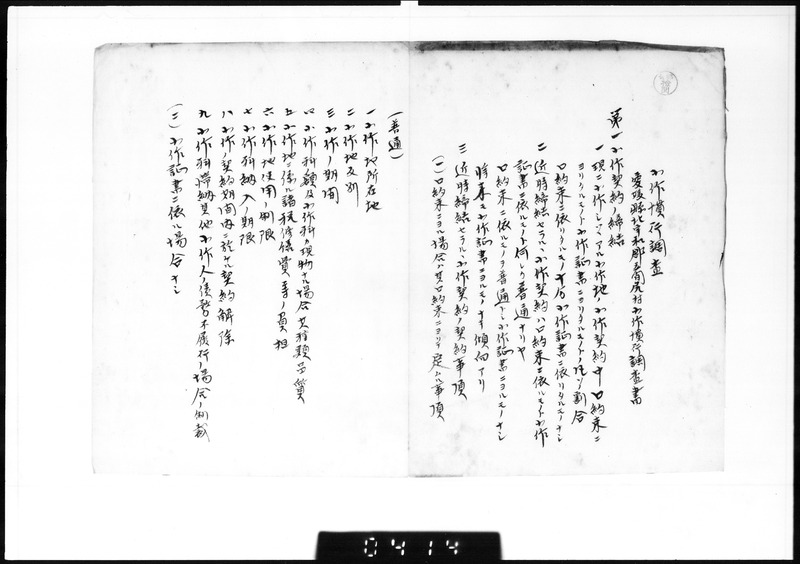 小作慣行調査
愛媛県北宇和郡 村小作慣行調査書
第一 小作契約ノ締結
一 現ニ小作シツヽアル小作地ノ小作契約中口約束ニ
ヨリタルモノト小作証書ニヨリタルモノトノ 割合
口約束ニ依リタルモノ十分小作証書ニ依リタルモノナシ
二 近時締結セラルヽ小作契約ハ口約束ニ依ルモノト小作
証書ニ依ルモノト何レカ普通ナリヤ
口約束ニ依ルモノヲ普通トシ小作証書ニヨルモノナシ
将来モ小作証書ニヨルモノナキ傾向アリ
三 近時締結セラルヽ小作契約ノ契約事項
(一)口約束ニヨル場合ハ其口約束ニヨリテ定ムル事項
(普通)
一 小作地所在地
二 小作地反別
三 小作ノ期間
四 小作料額及小作料ノ現物ナル場合其種類品質
五 小作地ニ係ル諸税修繕費等ノ負担
六 小作地使用ノ制限
七 小作料納入ノ期限
八 小作ノ契約期間内ニ於ケル契約解除
九 小作料滞納其他小作人ノ債務不履行ノ場合ノ制裁
(二)小作証書ニ依ル場合ナシ
0414